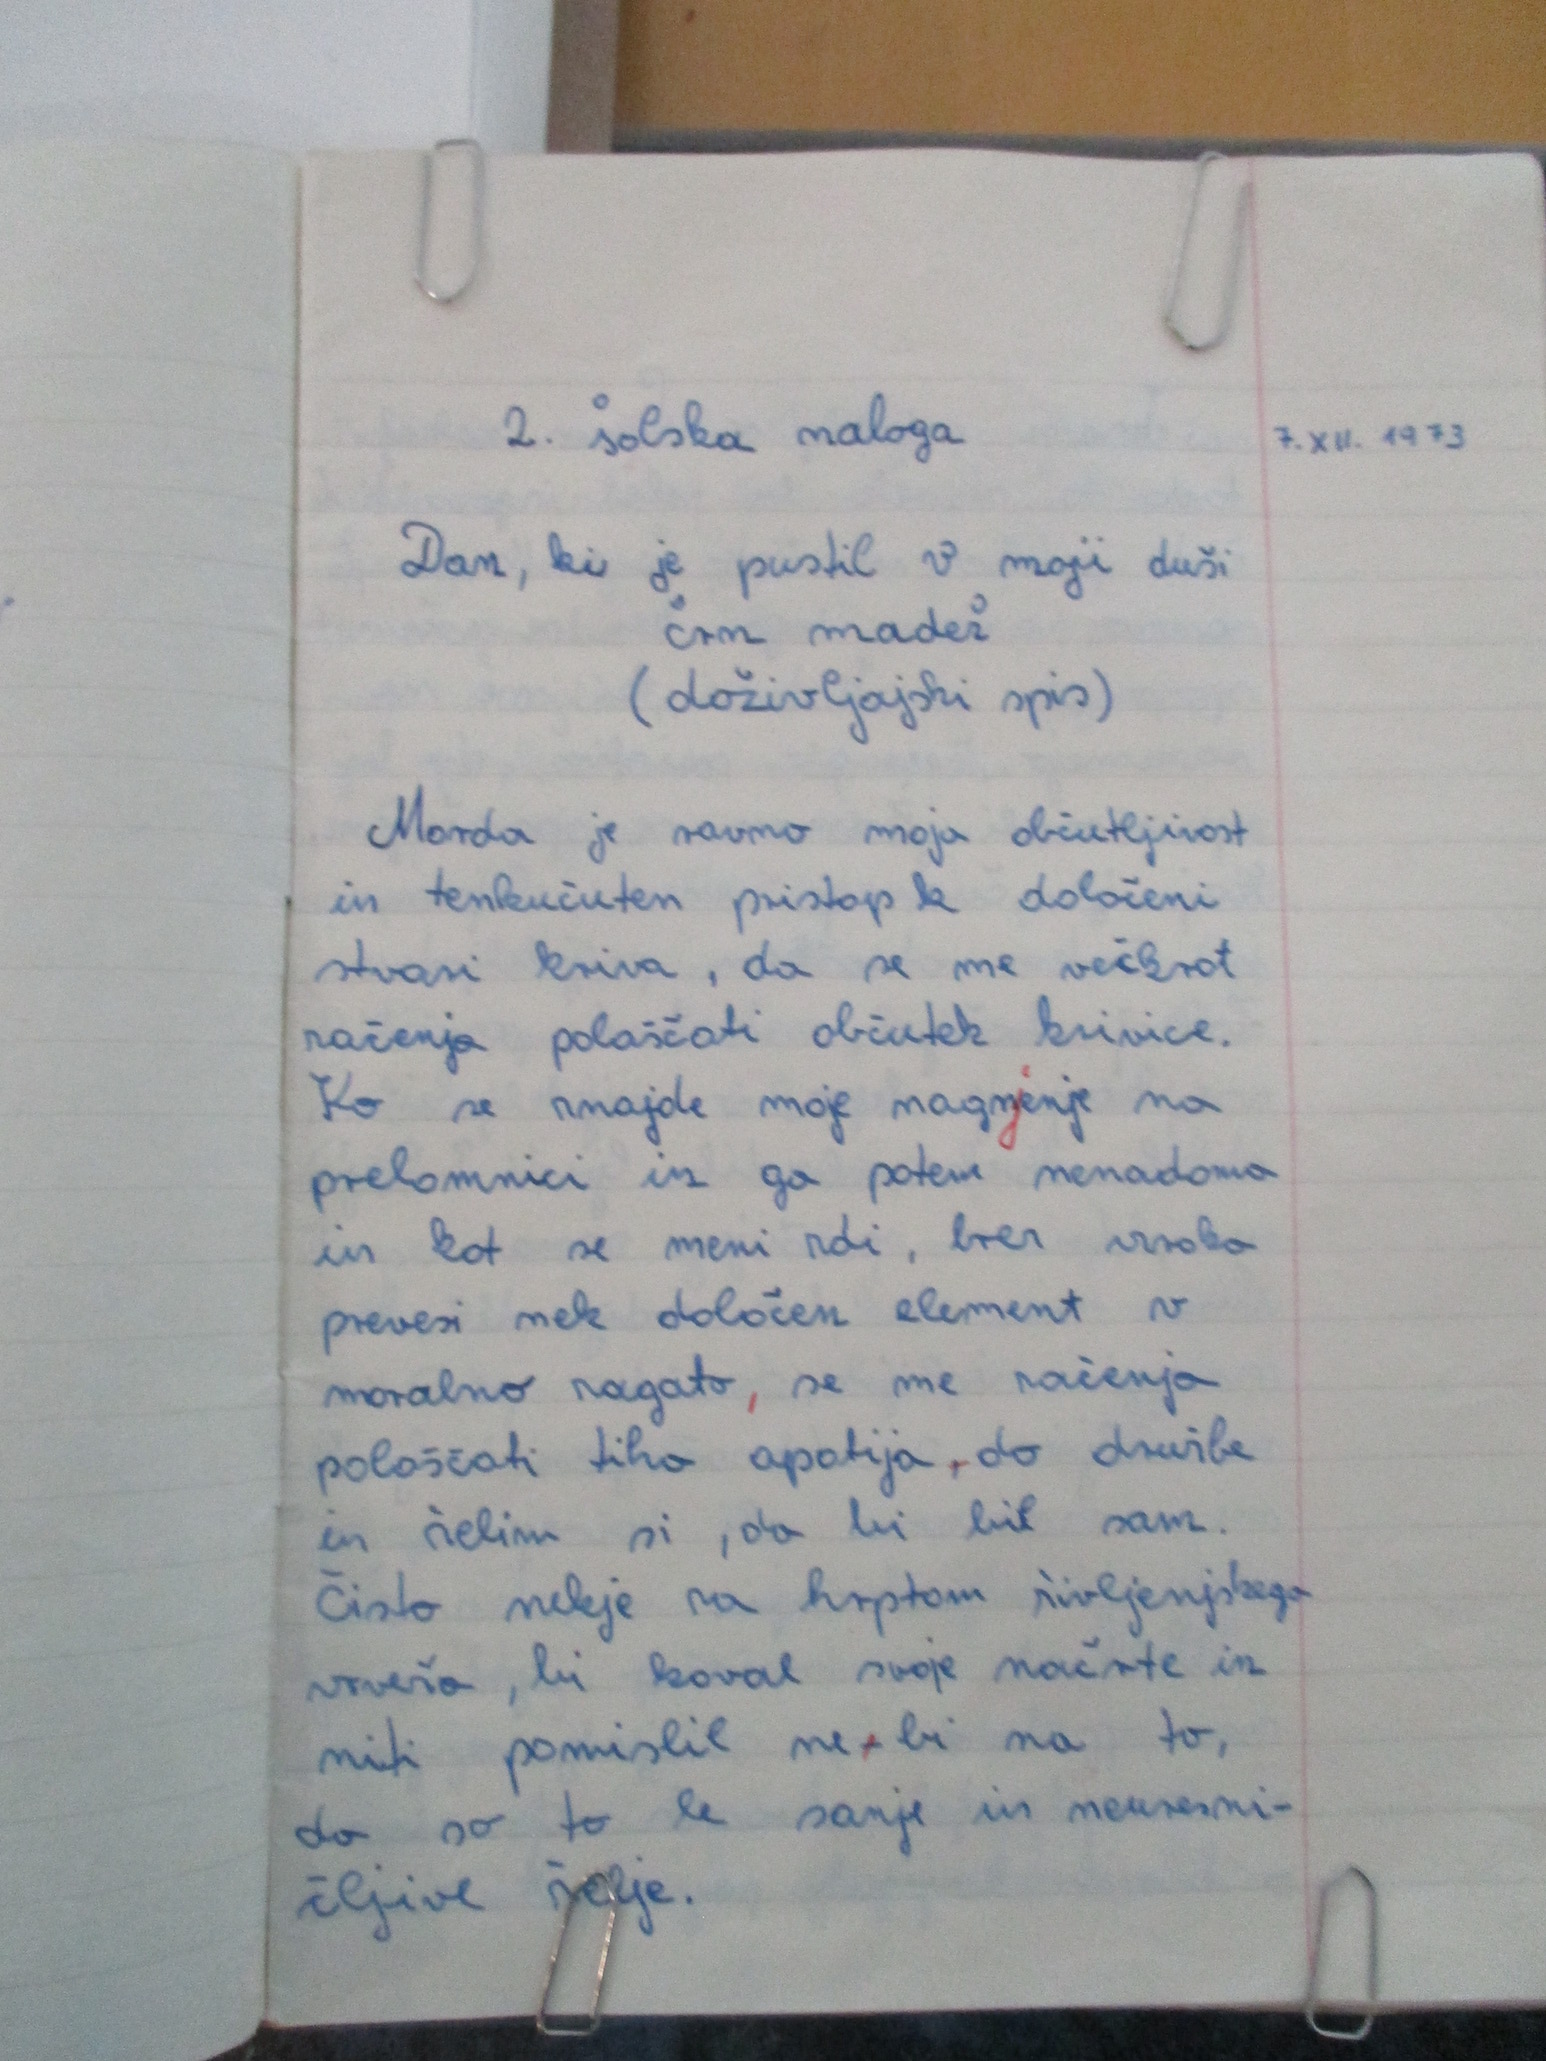 2. šolska naloga
7. XII. 1973
Dan, ki je pustil v moji duši
črn madež
(doživljajski spis)
Morda je ravno moja občutljivost
in tenkučuten pristop k določeni
stvari kriva, da se me večkrat
začenja polaščati občutek krivice.
Ko se znajde moje nagnjenje na
prelomnici in ga potem nenadoma
in kot se meni zdi, brez vzroka
prevesi nek določen element v
moralno zagato, se me začenja
polaščati tiha apatija, do družbe
in želim si, da bi bil sam.
Čisto nekje za hrptom življenjskega
vrveža, bi koval svoje načrte in
niti pomislil ne bi na to,
da so to le sanje in neuresni-
čljive želje.